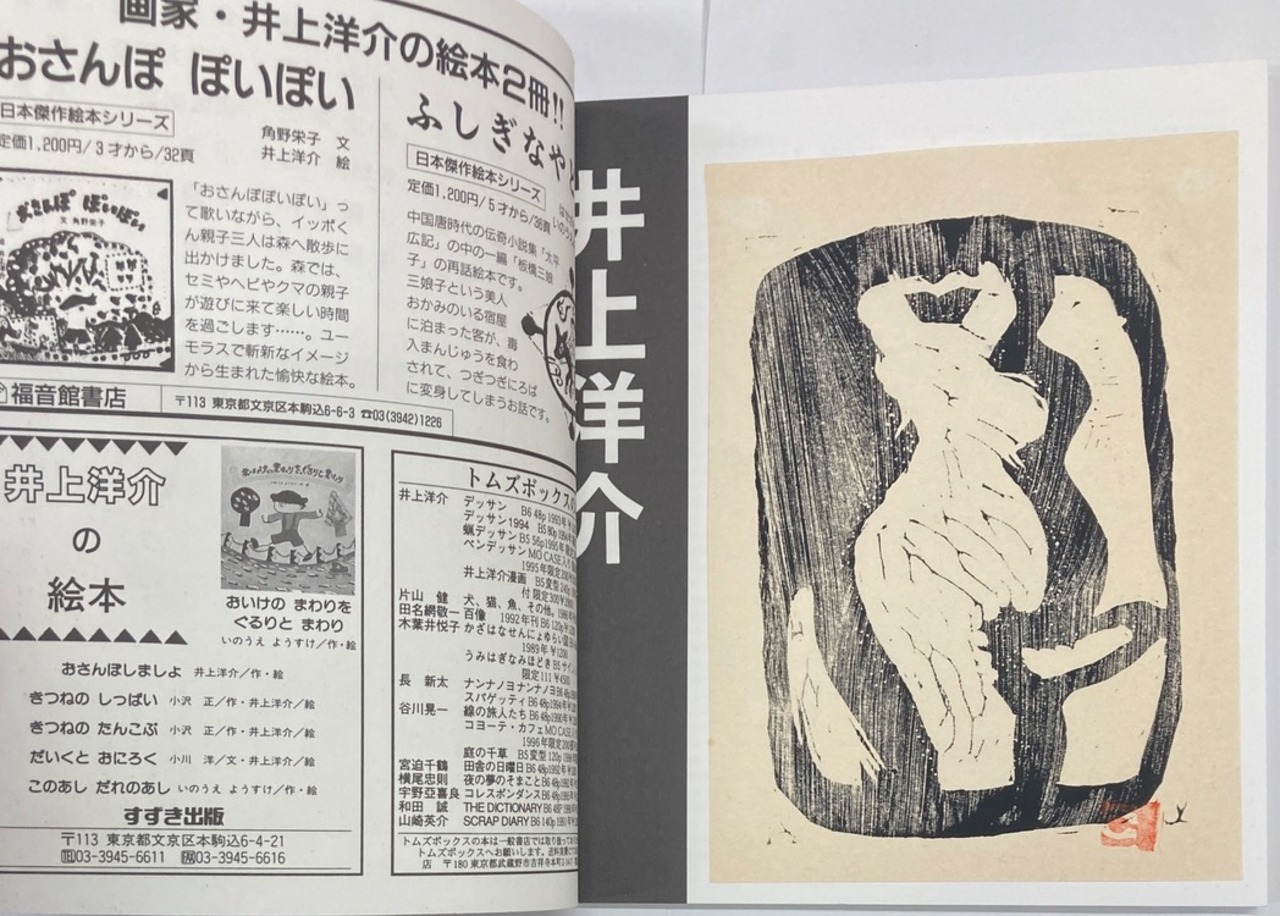 画家・井上洋介の絵本2冊!!
おさんぽ ぽいぽい
日本傑作絵本シリーズ
定価1,200円/3才から/32頁
角野栄子 文
井上洋介 絵
おさんぽ ぽいぽい
文 角野栄子
「おさんぽぽいぽい」っ
て歌いながら、イッポく
ん親子三人は森へ散歩に
出かけました。森では、
セミやヘビやクマの親子
が遊びに来て楽しい時間
を過ごします……。ユー
モラスで斬新なイメージ
から生まれた愉快な絵本。
ふしぎなやど
日本傑作絵本シリーズ
定価1,200円/5才から/36頁
中国唐時代の伝奇小説集「太平
広記」の中の一編「板橋三娘
子」の再話絵本です。
三娘子という美人
おかみのいる宿屋
に泊まった客が、毒
入まんじゅうを食わ
されて、つぎつぎにろば
に変身してしまうお話です。
福音館書店
〒113 東京都文京区本駒込6-6-3 ☎03(3942)1226
井上洋介
の
絵本
おいけの まわりを
ぐるりと まわり
いのうえ ようすけ/作・絵
おさんぽしましょ 井上洋介/作・絵
きつねの しっぱい 小沢 正/作・井上洋介/絵
きつねの たんこぶ 小沢 正/作・井上洋介/絵
だいくと おにろく 小川 洋/文・井上洋介/絵
このあし だれのあし いのうえ ようすけ/作・絵
すずき出版
〒113 東京都文京区本駒込6-4-21
TEL03-3945-6611 FAX03-3945-6616
トムズボックスの
井上洋介 デッサン B6 48p 1993年
デッサン1994 B5 80p 1994年
蝋デッサン B5 56p 1995年
ペンデッサン MO CASE入り
1995年限定200
井上洋介漫画 B5変型 240p
付 限定300
片山 健 犬、猫、魚、その他。
田名網敬一 百像 1992年刊 B6 120p
木葉井悦子 かざはなせんにょゆらい
1989年 ¥1200
うみはぎなみほどき B5 サイン
限定111 ¥4500
長 新太 ナンナノヨナンナノヨ B6 48p
スパゲッティ B6 48p 1994年
谷川晃一 線の旅人たち B6 48p 1990年
コヨーテ・カフェ MO CASE入り
1996年限定200
庭の千草 B5変型 120p
宮迫千鶴 田舎の日曜日 B6 48p 1992年
横尾忠則 夜の夢のそまこと B6 48p
宇野亜喜良 コレスポンダンス B6 48p
和田 誠 THE DICTIONARY B6 48P
山崎英介 SCRAP DIARY B6 140p 1991年
トムズボックスの本は一般書店では取り扱って
トムズボックスへお願いします。送料
店 〒180 東京都武蔵野市吉祥寺本町
井上洋介